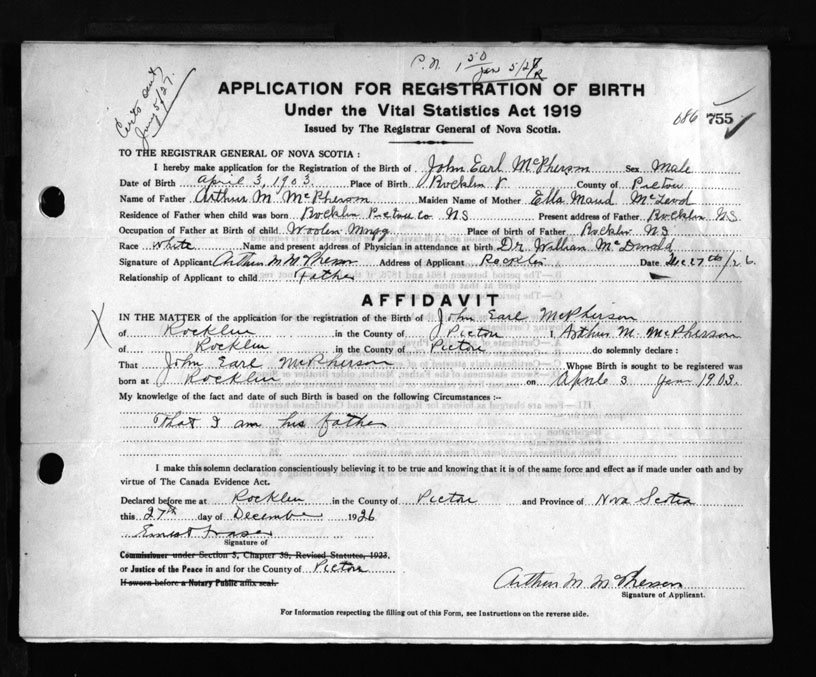 P.N. 1 50
Jan 5/27
Certs sent
Jany 5/27.
APPLICATION FOR REGISTRATION OF BIRTH
Under the Vital Statistics Act 1919
Issued by The Registrar General of Nova Scotia.
686 755
TO THE REGISTRAR GENERAL OF NOVA SCOTIA :
I hereby make application for the Registration of the Birth of John Earl McPherson Sex Male
Date of Birth April 3, 1903 Place of Birth Rocklin County of Pictou
Name of Father Arthur M McPherson Maiden Name of Mother Ella Maud McLeod
Residence of Father when child was born Rocklin Pictou Co NS Present address of Father Rocklin NS
Occupation of Father at Birth of child Woolen Place of birth of Father Rocklin NS
Race white Name and present address of Physician in attendance at birth Dr. William McDonald
Signature of Applicant Arthur M McPherson Address of Applicant Rocklin Date Dec 27th/26
Relationship of Applicant to child Father
AFFIDAVIT
IN THE MATTER of the application for the registration of the Birth of John Earl McPherson
of Rocklin in the County of Pictou I, Arthur M. McPherson
of Rocklin in the County of Pictou do solemnly declare :
That John Earl McPherson Whose Birth is sought to be registered was
born at Rocklin on April 3 year 1903.
My knowledge of the fact and date of such Birth is based on the following Circumstances :—
That I am his father
I make this solemn declaration conscientiously believing it to be true and knowing that it is of the same force and effect as if made under oath and by
virtue of The Canada Evidence Act.
Declared before me at Rocklin in the County of Pictou and Province of Nova Scotia
this 27th day of December 1926
Ernest Fraser
Signature of
Commissioner under Section 5, Chapter 38, Revised Statutes, 1923.
or Justice of the Peace in and for the County of Pictou
If sworn before a Notary Public affix seal.
Arthur M McPherson
Signature of Applicant.
For Information respecting the filling out of this Form, see Instructions on the reverse side.